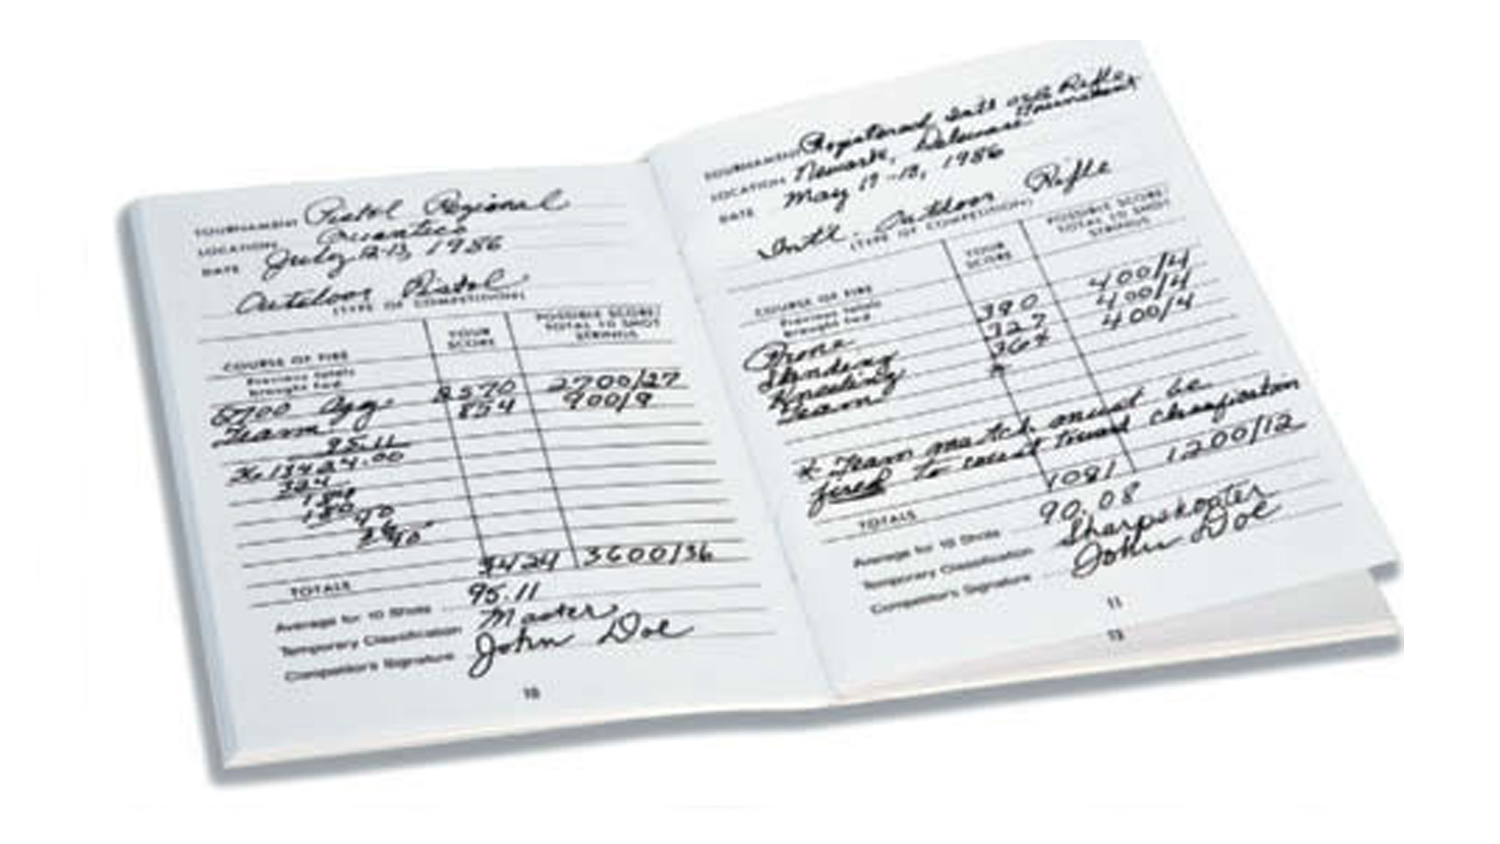 TOURNAMENT Pistol Regional
LOCATION Quantico
DATE July 12-13, 1986
Outdoor Pistol
(TYPE OF COMPETITION)
COURSE OF FIRE
YOUR SCORE
POSSIBLE SCORE/ TOTAL 10 SHOT STRINGS
Previous totals
brought fwd.
2700 Agg. 2570 2700/27
Team 854 900/9
95.11
36 13424.00
324
184
180
TOTALS 3424 3600/36
Average for 10 Shots 95.11
Temporary Classification Master
Competitor's Signature John Doe
10
TOURNAMENT Registered Intl Rifle Tournament
LOCATION Newark, Delaware
DATE May 17-18, 1986
Intl. Outdoor Rifle
(TYPE OF COMPETITION)
COURSE OF FIRE
YOUR SCORE
POSSIBLE SCORE/ TOTAL 10 SHOT STRINGS
Previous totals
brought fwd.
Prone 390 400/4
Standing 327 400/4
Kneeling 364 400/4
Team *
* Team match must be
fired to count toward classification
TOTALS 1081 1200/12
Average for 10 Shots 90.08
Temporary Classification Sharpshooter
Competitor's Signature John Doe
11
13